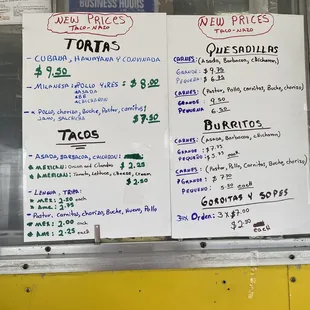 BUSINESS HOURS
NEW PRICES
TACO-NAZO
TORTAS
- CUBANA, HAWAYANA Y COMBINADA
$9.50
- MILANESA: POLLO Y RES
$8.00
ASADA
$7.50
TACOS
- ASADA, BARBACOA, CHICHARON:
MEXICAN: Onion and Cilantro $2.25
AMERICAN: Tomato, lettuce, cheese, cream
$2.50
- LENGUA, TRIPA:
MEX: 2.50 each
AME: 2.75
- Pastor, Carnitas, chorizo, Buche, Nuevo, Pollo
MEX: 2.00 each
AME: 2.25 each
NEW PRICES
TACO-NAZO
QUESADILLAS
CARNES: (Asada, Barbacoa, chicharron)
GRANDE: $9.75
PEQUEÑA $6.75
CARNES: (Pastor, Pollo, Carnitas, Buche, chorizo)
GRANDE: 9.50
PEQUEÑA 6.50
BURRITOS
CARNES: (Asada, Barbacoa, chicharron)
GRANDE: $7.75
each
CARNES: (Pastor, Pollo, Carnitas, Buche, chorizo)
GRANDE: $7.50
PEQUENO: 5.50 each
GORDITAS Y SOPES
3x Orden: 3x $7.00
$2.50 each